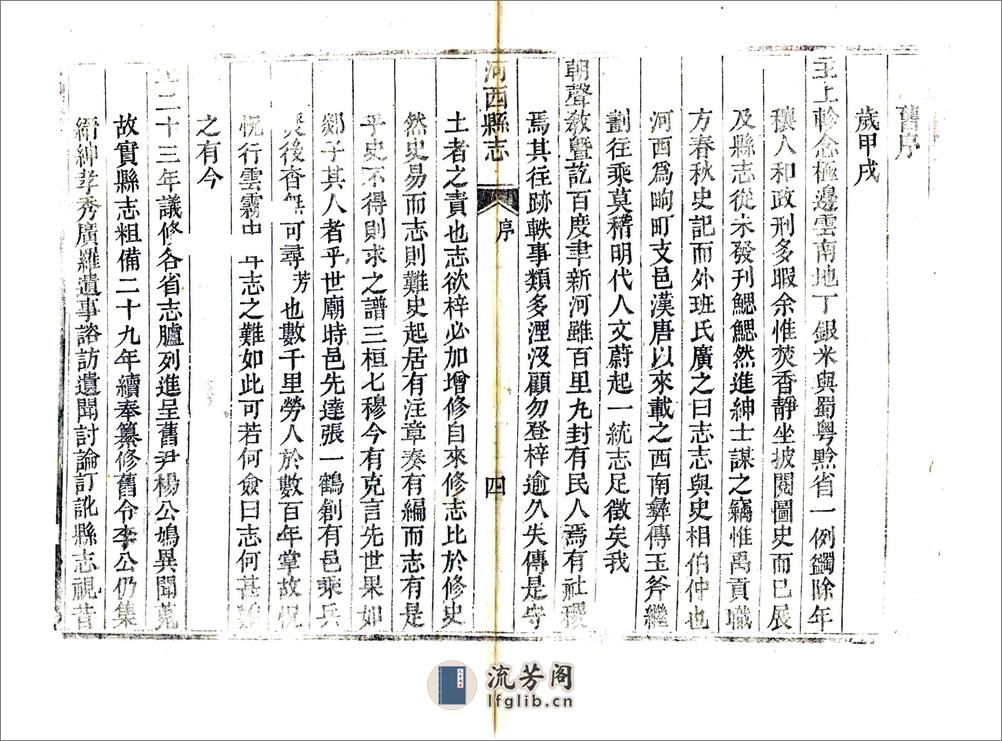 舊序
歲甲戌
主上軫念極邊雲南地丁銀米與蜀粵黔省一例蠲除年
穰人和政刑多暇余惟焚香靜坐披閱圖史而已展
及縣志從未發刊鰓鰓然進紳士謀之竊惟禹貢職
方春秋史記而外班氏廣之曰志志與史相伯仲也
河西爲畇町支邑漢唐以來載之西南彝傳玉斧繼
劃往乘莫稽明代人文蔚起一統志足徵矣我
朝聲敎曁訖百度聿新河雖百里九封有民人焉有社稷
焉其往跡軼事類多湮沒顧勿登梓逾久失傳是守
河西縣志
序
四
土者之責也志欲梓必加增修自來修志比於修史
然史易而志則難史起居有注章奏有編而志有是
乎史不得則求之譜三桓七穆今有克言先世果如
郯子其人者乎世廟時邑先達張一鶴創有邑乘兵
後香無可尋芳也數千里勞人於數百年掌故況
行雲霧中志之難如此可若何僉曰志何甚難
之有今
二十三年議修各省志臚列進呈舊尹楊公鳩異聞蒐
故實縣志粗備二十九年續奉纂修舊令李公仍集
縉紳孝秀廣羅遺事諮訪遺聞討論訂訛縣志視昔
流芳阁
lfglib.cn